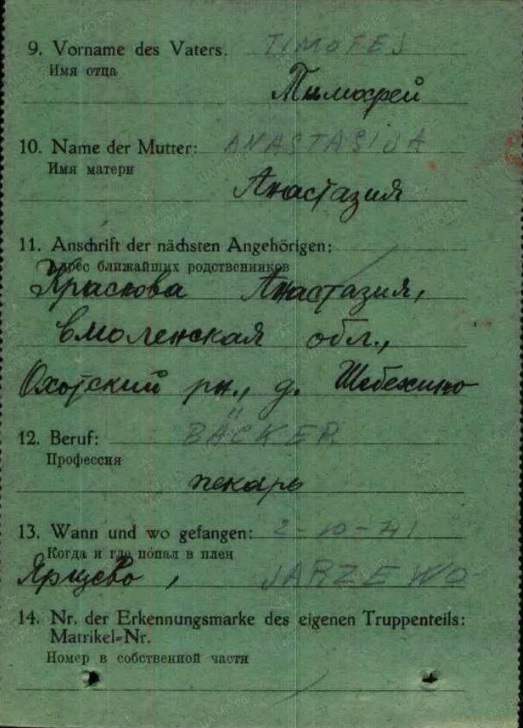 9. Vorname des Vaters. TIMOFEJ
Имя отца
Тимофей
10. Name der Mutter: ANASTASIJA
Имя матери
Анастазия
11. Anschrift der nächsten Angehörigen:
Адрес ближайших родственников
Краснова Анастазия,
Смоленская обл.,
Охотский рн., д. Шебехино
12. Beruf: BÄCKER
Профессия
пекарь
13. Wann und wo gefangen: 2-10-41
Когда и где попал в плен
Ярцево, JARZEWO
14. Nr. der Erkennungsmarke des eigenen Truppenteils:
Matrikel-Nr.
Номер в собственной части